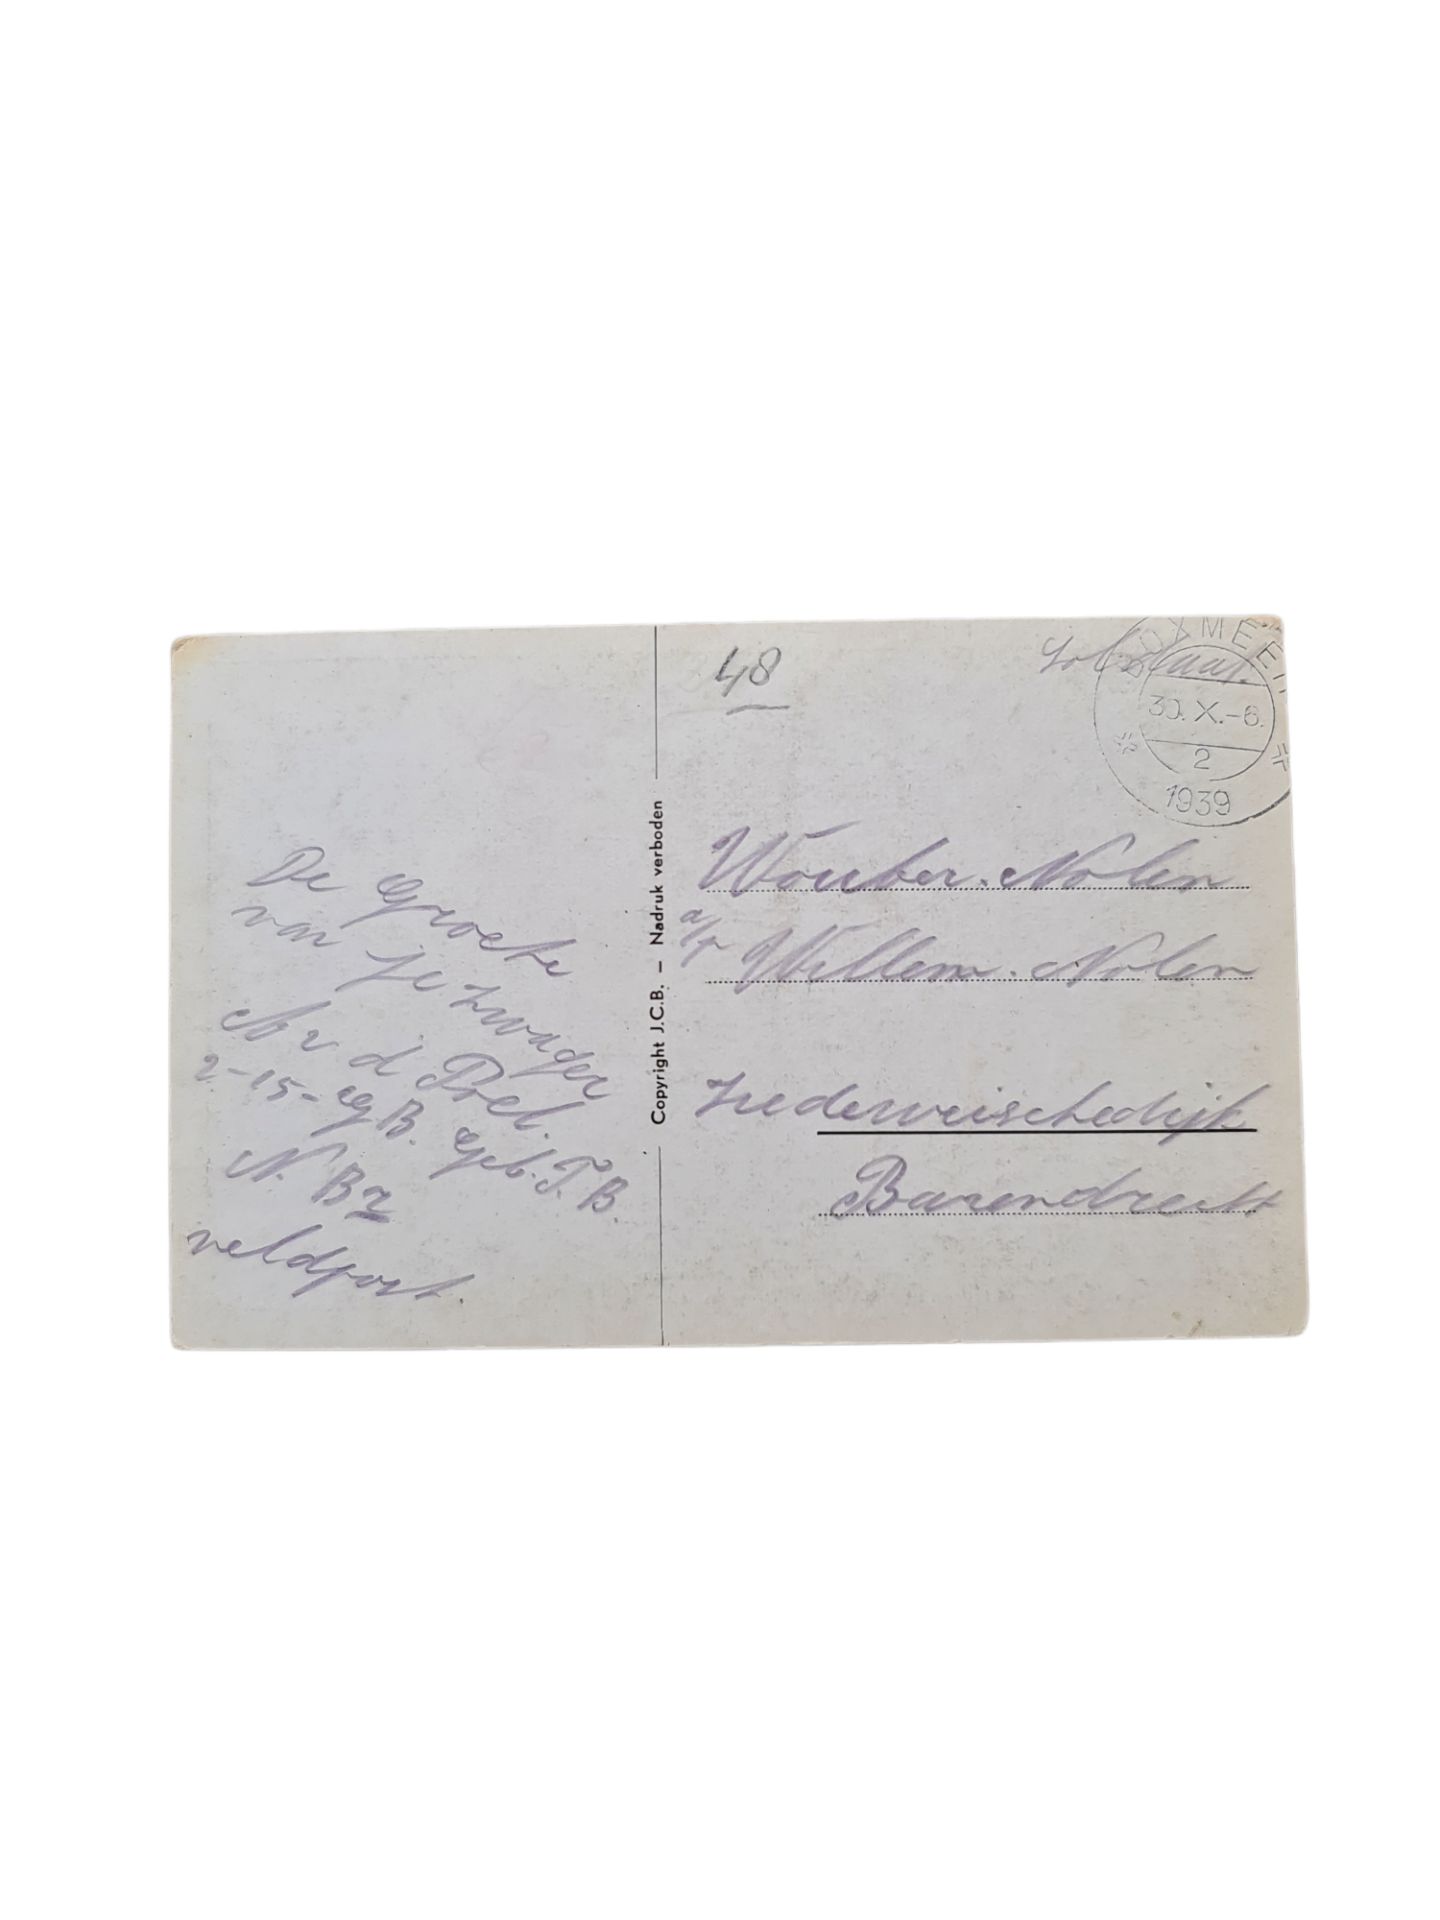 De Groete
van je zwager
A v d Poel.
2-15- G B. Geb. T. B.
N. B
veldpost.
Copyright J.C.B. – Nadruk verboden
48
BOXMEER
30. X.-6.
2
1939
Wouter. Nolen
a/v Willem. Nolen
Barendrecht